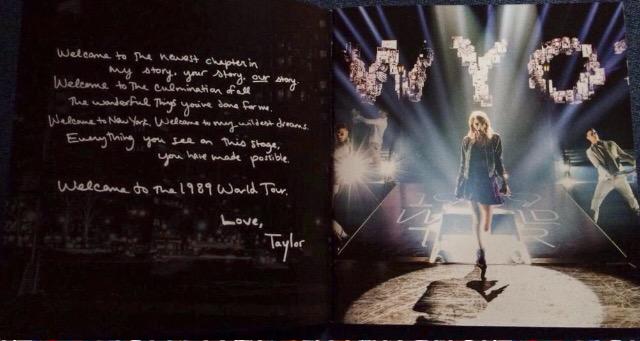 Welcome to the newest chapter in
my story. your story. our story.
Welcome to the culmination of all
the wonderful things you've done for me.
Welcome to New York. Welcome to my wildest dreams.
Everything you see on this stage,
you have made possible.
Welcome to the 1989 World Tour.
Love,
Taylor
NYO
WORLD
TOUR